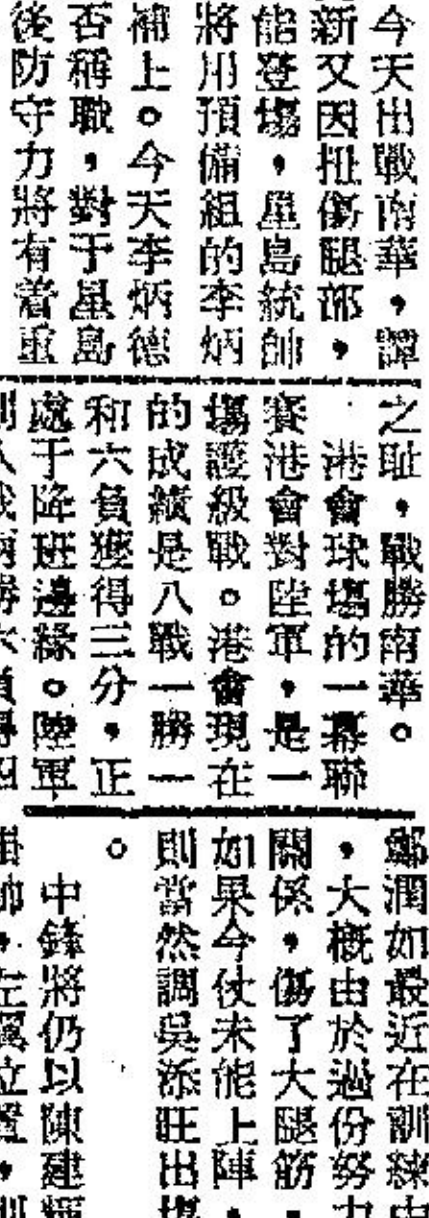 今天出戰南華，譚
新又因扭傷腿部，
能登塲，星島統帥
將用預備組的李炳
補上。今天李炳德
否稱職，對于星島
後防守力將有着重
之耻，戰勝南華。
港會球塲的一幕聯
賽港會對陸軍，是一
塲護級戰。港會現在
的成績是八戰一勝一
和六負獲得三分，正
處于降班邊緣。陸軍
鄺潤如最近在訓練中
，大概由於過份努力
關係，傷了大腿筋，
如果今仗未能上陣，
則當然調吳添旺出塲
。
中鋒將仍以陳建輝